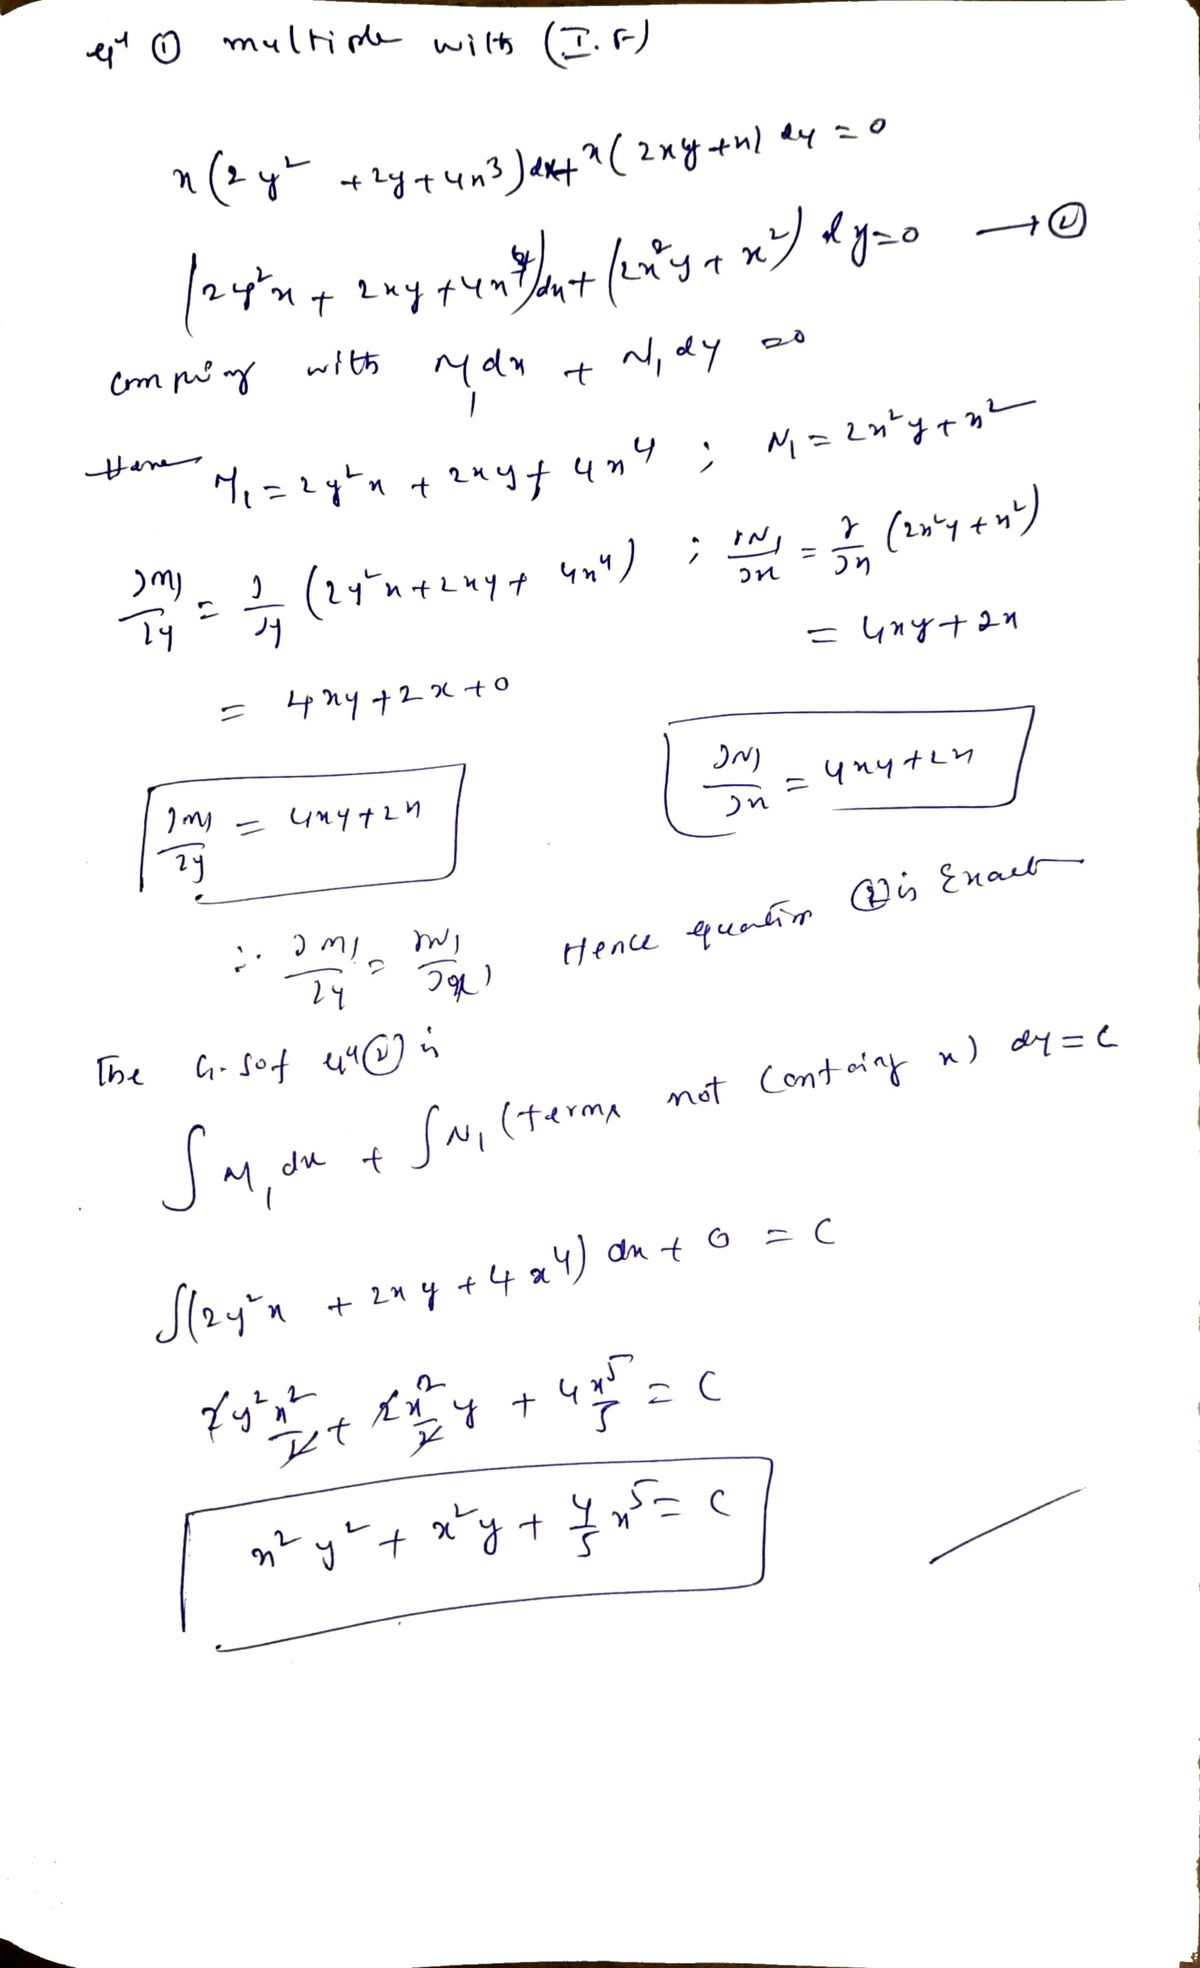 eqn ① multiple with (I.F)
x(2y² + 2y + 4x³)dx + x(2xy + x) dy = 0
(2y²x + 2xy + 4x⁴)dx + (2x²y + x²) dy = 0 → ②
with M₁dx + N₁dy = 0
Here M₁ = 2y²x + 2xy + 4x⁴ ; N₁ = 2x²y + x²
∂M₁/∂y = ∂/∂y (2y²x + 2xy + 4x⁴) ; ∂N₁/∂x = ∂/∂x (2x²y + x²)
= 4xy + 2x
= 4xy + 2x + 0
∂M₁/∂y = 4xy + 2x
∂N₁/∂x = 4xy + 2x
∴ ∂M₁/∂y = ∂N₁/∂x, Hence equation ② is Exact
The G.S of eqn ② is
∫M₁dx + ∫N₁ (terms not containg x) dy = C
∫(2y²x + 2xy + 4x⁴) dx + 0 = C
2y² x²/2 + 2x²/2 y + 4x⁵/5 = C
x²y² + x²y + 4/5 x⁵ = C